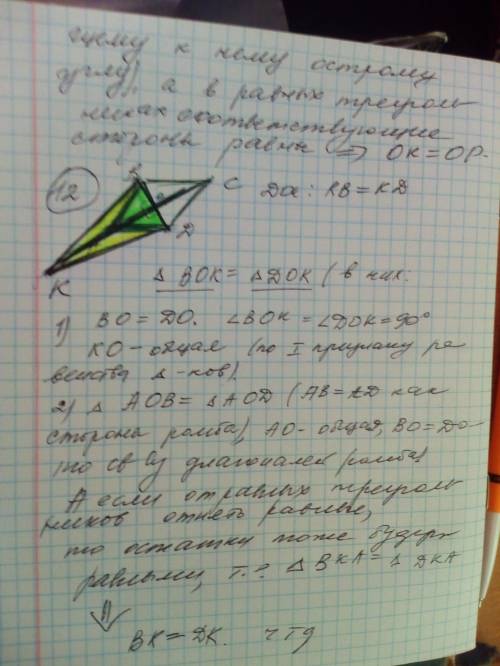 щему к нему острому
углу), а в равных треуголь
никах соответствующие
стороны равны ⇒ OK = OP.
12
B
C
D
K
Док: KB = KD
△ BOK = △ DOK (в них:
1) BO = DO. ∠BOK = ∠DOK = 90°
KO – общая (по I признаку ра
венства △-ков).
2) △ AOB = △ AOD (AB = AD как
стороны ромба), AO – общая, BO = DO
по св-ву диагоналей ромба.
А если от равных треуголь
ников отнять равные,
то остатки тоже будут
равными, т.е. △ BKA = △ DKA
⇓
BK = DK. чтд